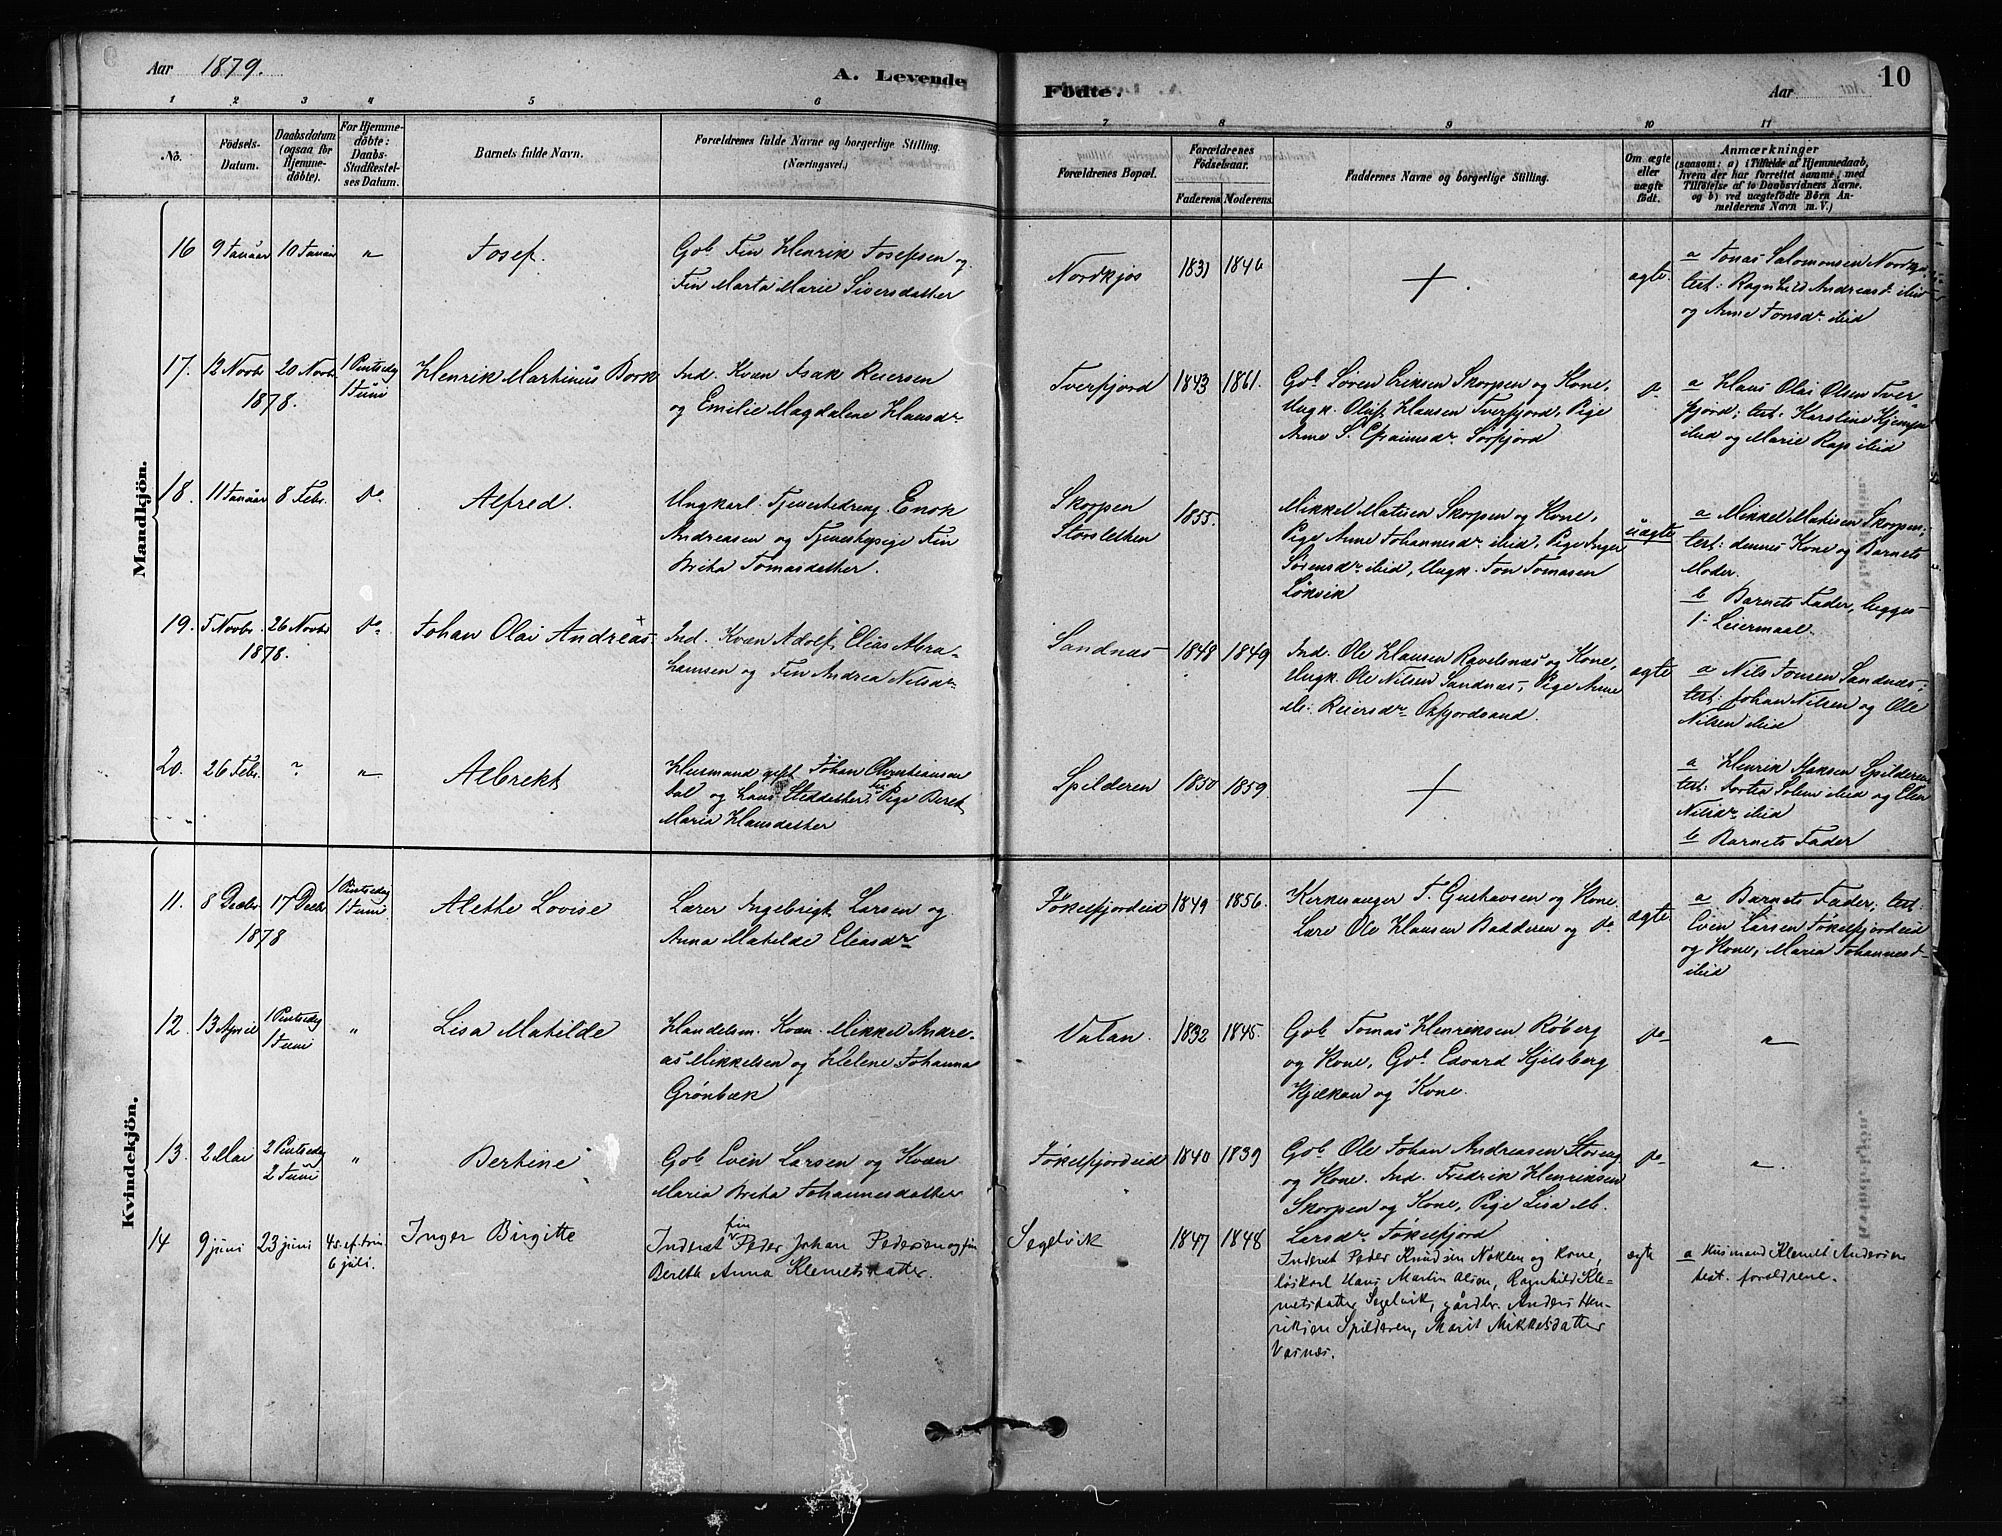 Aar 1879.
A. Levende
Födte.
Aar
10
1 2 3 4 5 6 7 8 9 10 11
No.
Födsels-
Datum.
Daabsdatum
(ogsaa for
Hjemme-
döbte).
For Hjemme-
döbte:
Daabs-
Stadfæstel-
ses Datum.
Barnets fulde Navn.
Forældrenes fulde Navne og borgerlige Stilling.
(Næringsvei.)
Forældrenes Bopæl.
Forældrenes
Födselsaar.
Faderens Moderens
Faddernes Navne og borgerlige Stilling.
Om ægte
eller
uægte
födt.
Anmærkninger
(saasom: a) i Tilfælde af Hjemmedaab,
hvem der har forrettet samme, med
Tilföielse af to Daabsvidners Navne.
og b) ved uægtefödte Börn An-
melderens Navn m. V.)
Mandkjön.
16 9 Januar 10 Januar " Josef.
Gbr. Fin Henrik Josefsen og
Fin Marta Marie Siversdatter
Nordkjos 1831 1846 + ægte.
a Jonas Salomonsen Nordkjos
test: Ragnhild Andreasd. ibid
og Anne Jonsdr. ibid
17. 12 Novbr 20 Novbr 1 Pintsedag
1878. 1 Juni
Henrik Martinus Bork
Ind. Kvæn Isak Reiersen
og Emilie Magdalene Hansdr
Tverfjord 1843 1861.
Gbr. Søren Eriksen Skorpen og Kone,
Ungk. Oluf Hansen Tverfjord, Pige
Anne S. Efraimsdr. Sørfjord
do
a Hans Olai Olsen Tver-
fjord; test: Karoline
ibid og Marie Rap ibid
18. 11 Januar 8 Febr. do Alfred.
Ungkarl. Tjenestedreng Enok
Andreasen og Tjenestepige Fin
Brita Tomasdatter.
Skorpen
Storsletten
1855.
Mikkel Matisen Skorpen og Kone,
Pige Anne Johannesdr. ibid, Pige Inger
Sørensdr. ibid, Ungk. Jon Tomasen
Løkvik
uægte
a Mikkel Matisen Skorpen;
test: dennes Kone og Barnets
Moder.
b Barnets Fader, begges
1. Leiermaal.
19. 5 Novbr. 26 Novbr do
1878.
Johan Olai Andreas +
Ind. Kvæn Adolf Elias Abra-
hamsen og Fin Andrea Nilsdr
Sandnæs 1848 1849
Ind. Ole Hansen Ravelsnæs og Kone,
Ungk. Ole Nilsen Sandnæs, Pige Anne
M. Reiersdr Oxfjordsand.
ægte
a Nils Jonsen Sandnæs;
test: Johan Nilsen og Ole
Nilsen ibid
20. 26 Febr. ? " Albrekt
Husmand gift Johan Christiansen
og Fin Pige Beret
Maria Hansdatter
Spilderen 1850 1859. +
a Henrik Isaksen Spilderen
test: ibid og Elen
Nilsdr ibid
b Barnets Fader
Kvindekjön.
11. 8 Decbr 17 Decbr 1 Pintsedag
1878 1 Juni
Alethe Lovise
Lærer Ingebrigt Larsen og
Anna Matilde Eliasdr
Jøkelfjordeid 1849 1856.
Kirkesanger J. Gustavsen og Kone
Lærer Ole Hansen Badderen og do
ægte
a Barnets Fader; test:
Even Larsen Jøkelfjordeid
og Kone, Maria Johannesd
ibid
12. 13 April 1 Pintsedag
1 Juni
" Lisa Matilde
Handelsm. Kvæn. Mikkel Andre-
as Mikkelsen og Helene Johanna
Grønbæk
Valan. 1832 1845.
Gbr. Tomas Henriksen Røberg
og Kone, Gbr. Edvard Kjelsberg
Kjækan og Kone.
do "
13. 2 Mai 2 Pintsedag
2 Juni
" Bertine
Gbr Even Larsen og Kvæn
Maria Brita Johannesdatter
Jøkelfjordeid 1840 1839
Gbr. Ole Johan Andreasen Storeng
og Kone. Ind. Fredrik Henriksen
Skorpen og Kone, Pige Lisa M.
Larsdr. Jøkelfjord
do ".
14 9 juni 23 juni 4 s. ef. trin
6 juli.
Inger Birgitte
Inderst fin Peder Johan Pedersen og fin
Berethe Anna Klemetsdatter.
Segelvik 1847 1848
Inderst Peder Knudsen Noklen og kone,
løskarl Hans Martin Olsen, Ragnhild Kle-
metsdatter Segelvik, gårdbr. Anders Hen-
riksen Spilderen, Marit Mikkelsdatter
Vasnæs.
ægte
a Husmand Klemet Andersen
test. forældrene.